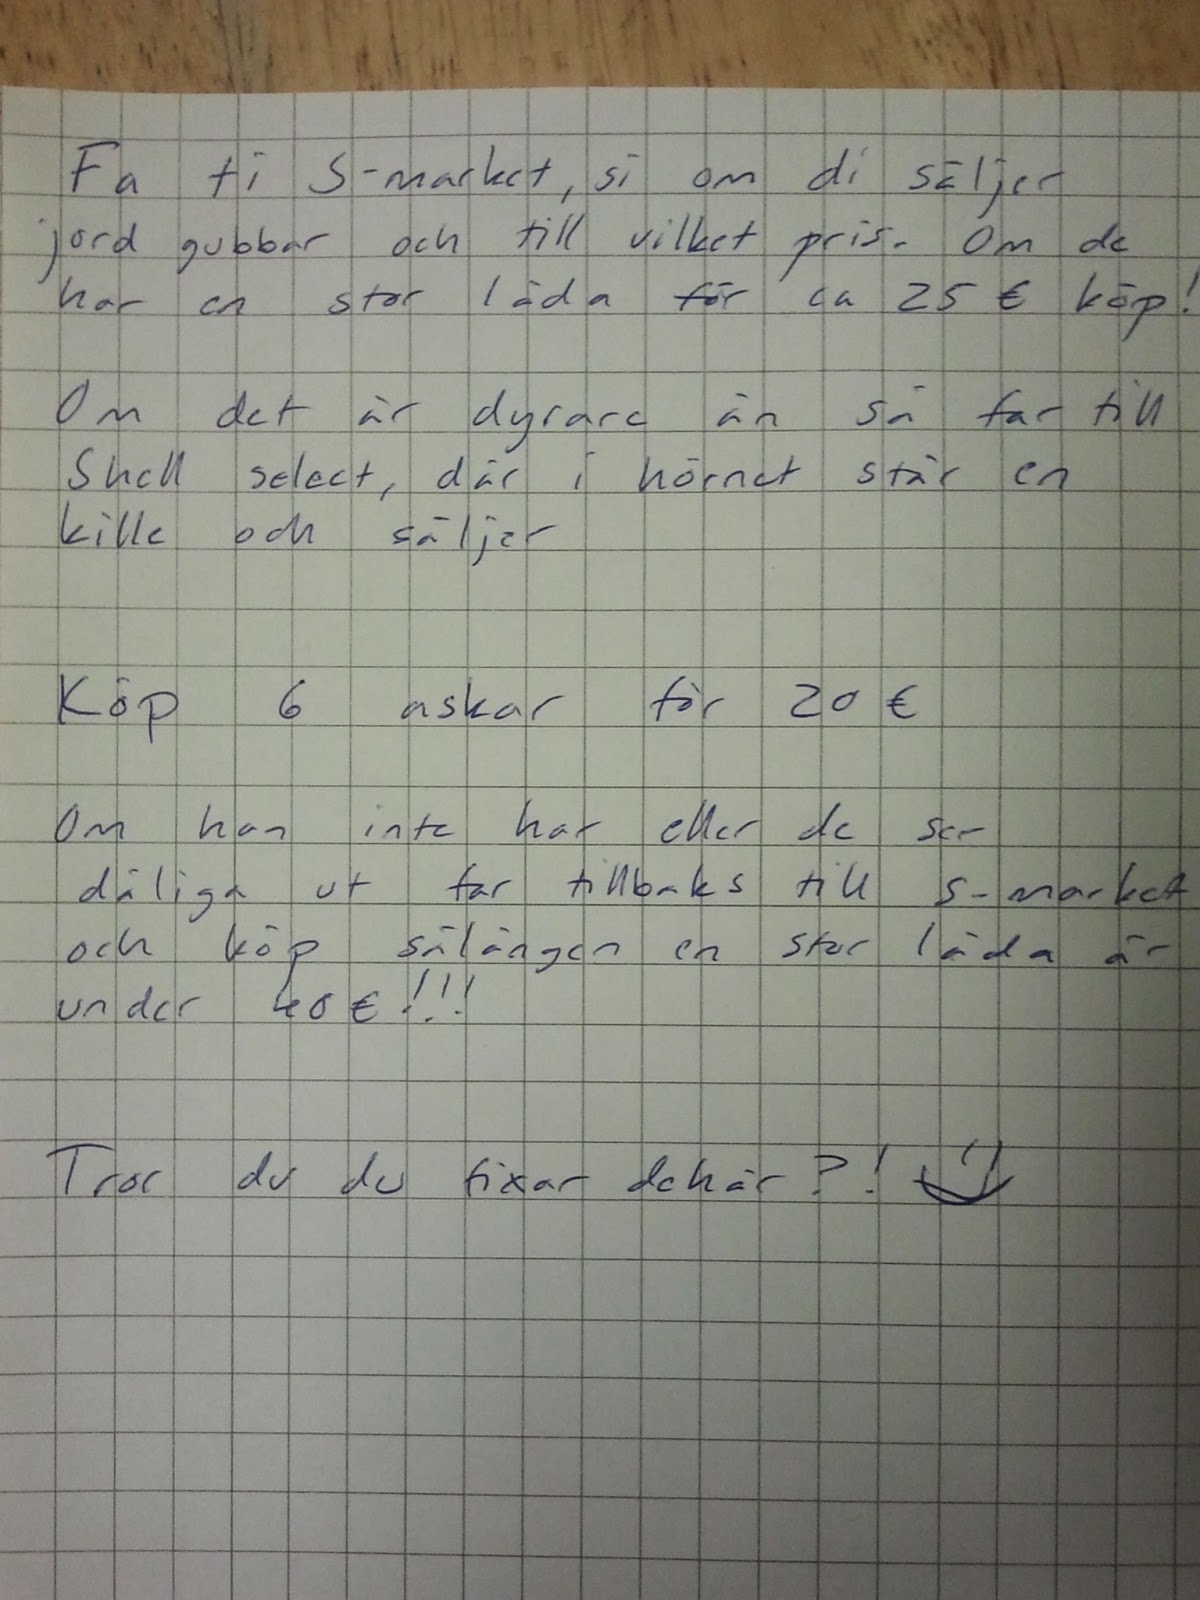 Fa ti S-market, si om di säljer
jord gubbar och till vilket pris. Om de
har en stor låda för ca 25 € köp!
Om det är dyrare än så far till
Shell select, där i hörnet står en
kille och säljer
Köp 6 askar för 20 €
Om han inte har eller de ser
dåliga ut far tillbaks till S-market
och köp sålängen en stor låda är
under 40 € !!!
Tror du du fixar dehär?! :)